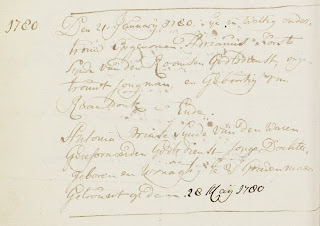 1780
Den 21 January 1780 zijn wettig onder
trouw Opgenomen Adrianus Voort
Zijnde van den Roomsen Godtsdienst, onge
trouwt Jongman, en Geboortig van
Raamdonk Ende
Antonia Zijnde van den Waren
Gereformeerden Godtsdienst Jonge Dochter,
geboren en Woonagtig te
Getrouwt op den 28 Maij 1780